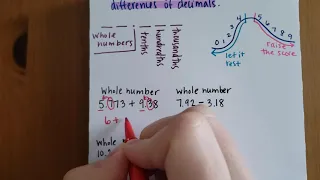 differences of decimals.
whole numbers
tenths
hundredths
thousandths
0 1 2 3 4 5 6 7 8 9
let it rest
raise the score
whole number
5.773 + 9.38
6 +
whole number
7.92 - 3.18
whole
10.2